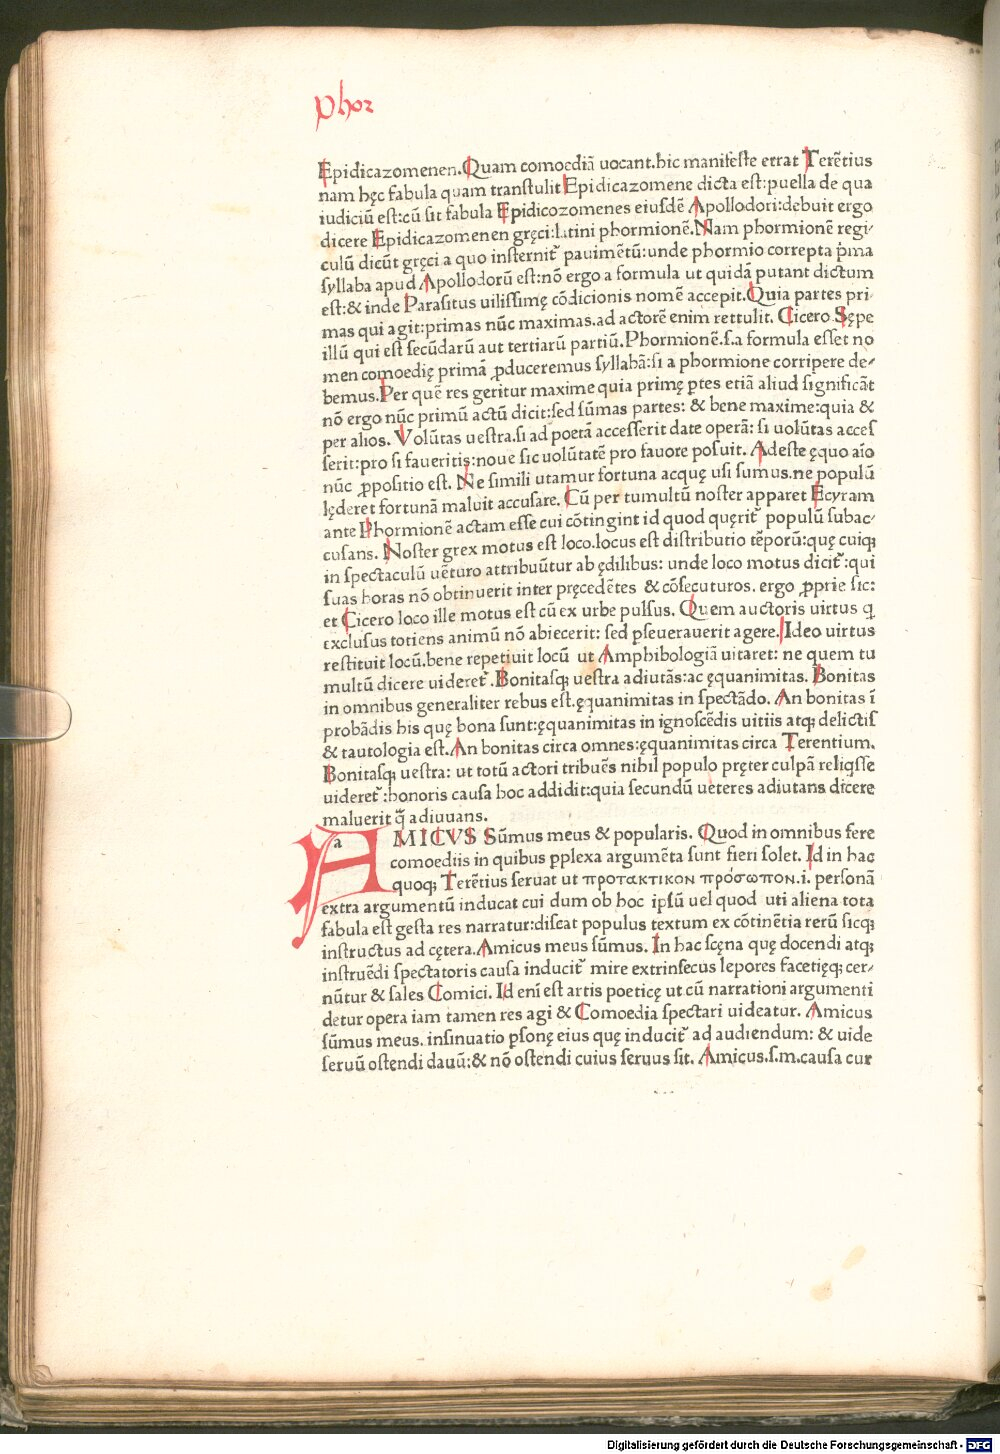 phor
Epidicazomenen.Quam comoediã uocant.hic manifeste errat Terẽtius
nam hęc fabula quam transtulit Epidicazomene dicta est:puella de qua
iudiciũ est:cũ sit fabula Epidicozomenes eiusdẽ Apollodori:debuit ergo
dicere Epidicazomenen gręci:latini phormionẽ.Nam phormionẽ regi-
culũ dicũt gręci a quo insternit᷑ pauimẽtũ:unde phormio correpta p̃ma
syllaba apud Apollodorũ est:nõ ergo a formula ut quidã putant dictum
est:& inde Parasitus uilissimę cõdicionis nomẽ accepit.Quia partes pri-
mas qui agit:primas nũc maximas.ad actorẽ enim rettulit. Cicero Sępe
illũ qui est secũdarũ aut tertiarũ partiũ.Phormionẽ.s.a formula esset no
men comoedię primã ꝓduceremus syllabã:si a phormione corripere de-
bemus.Per quẽ res geritur maxime quia primę ꝑtes etiã aliud significãt
nõ ergo nũc primũ actũ dicit:sed sũmas partes: & bene maxime:quia &
per alios. Volũtas uestra.si ad poetã accesserit date operã: si uolũtas acces
serit:pro si faueritis:noue sic uolũtatẽ pro fauore posuit. Adeste ęquo aĩo
nũc ꝓpositio est. Ne simili utamur fortuna acquę usi sumus.ne populũ
lęderet fortunã maluit accusare. Cũ per tumultũ noster apparet Ecyram
ante Phormionẽ actam esse cui cõtingint id quod quęrit᷑ populũ subac-
cusans. Noster grex motus est loco.locus est distributio tẽporũ:quę cuiqꝫ
in spectaculũ uẽturo attribuũtur ab ędilibus: unde loco motus dicit᷑:qui
suas horas nõ obtinuerit inter pręcedẽtes & cõsecuturos. ergo ꝓprie sic:
et Cicero loco ille motus est cũ ex urbe pulsus. Quem auctoris uirtus q
exclusus totiens animũ nõ abiecerit: sed ꝑseuerauerit agere. Ideo uirtus
restituit locũ.bene repetiuit locũ ut Amphibologiã uitaret: ne quem tu
multũ dicere uideret᷑. Bonitasqꝫ uestra adiutãs:ac ęquanimitas. Bonitas
in omnibus generaliter rebus est.ęquanimitas in spectãdo. An bonitas ĩ
probãdis his quę bona sunt:ęquanimitas in ignoscẽdis uitiis atqꝫ delictis
& tautologia est.An bonitas circa omnes:ęquanimitas circa Terentium.
Bonitasqꝫ uestra: ut totũ actori tribuẽs nihil populo pręter culpã reliq̃sse
uideret᷑:honoris causa hoc addidit:quia secundũ ueteres adiutans dicere
maluerit q̃ adiuuans.
AMICVS Sũmus meus & popularis. Quod in omnibus fere
comoediis in quibus ꝑplexa argumẽta sunt fieri solet. Id in hac
quoqꝫ Terẽtius seruat ut προτακτικον πρόσωπον.i. personã
extra argumentũ inducat cui dum ob hoc ipsũ uel quod uti aliena tota
fabula est gesta res narratur:discat populus textum ex cõtinẽtia rerũ sicqꝫ
instructus ad cętera.Amicus meus sũmus. In hac scęna quę docendi atqꝫ
instruẽdi spectatoris causa inducit᷑ mire extrinsecus lepores facetięqꝫ cer-
nũtur & sales Comici. Id enĩ est artis poeticę ut cũ narrationi argumenti
detur opera iam tamen res agi & Comoedia spectari uideatur. Amicus
sũmus meus. insinuatio ꝑsonę eius quę inducit᷑ ad audiendum: & uide
seruũ ostendi dauũ:& nõ ostendi cuius seruus sit. Amicus.s.m.causa cur
Digitalisierung gefördert durch die Deutsche Forschungsgemeinschaft - DFG